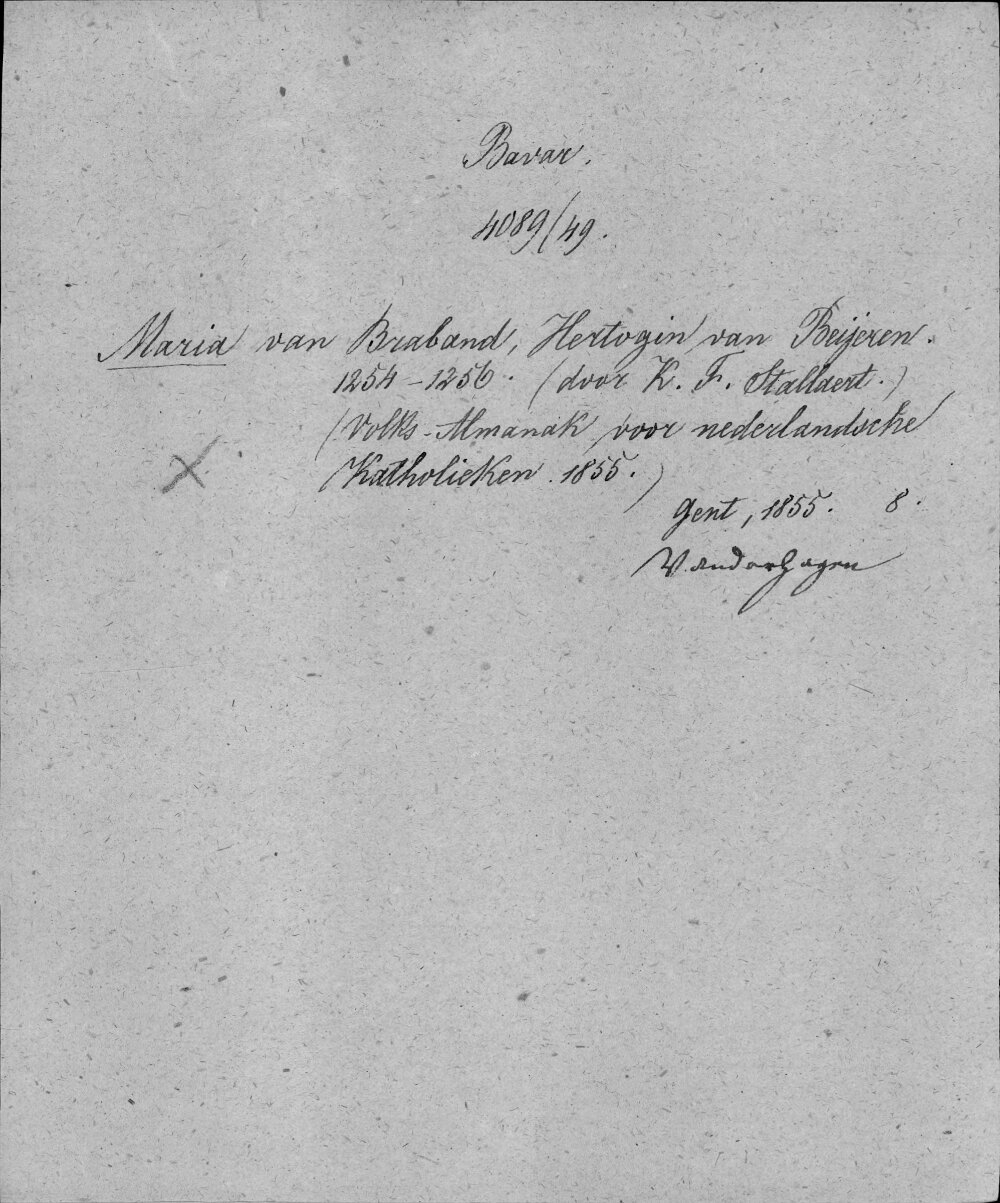 Bavar.
4089/49.
Maria van Braband, Hertogin van Beijeren.
1254-1256. (door K. F. Stallaert.)
(Volks-Almanak voor nederlandsche
Katholieken. 1855.)
Gent, 1855. 8.
Vanderhagen